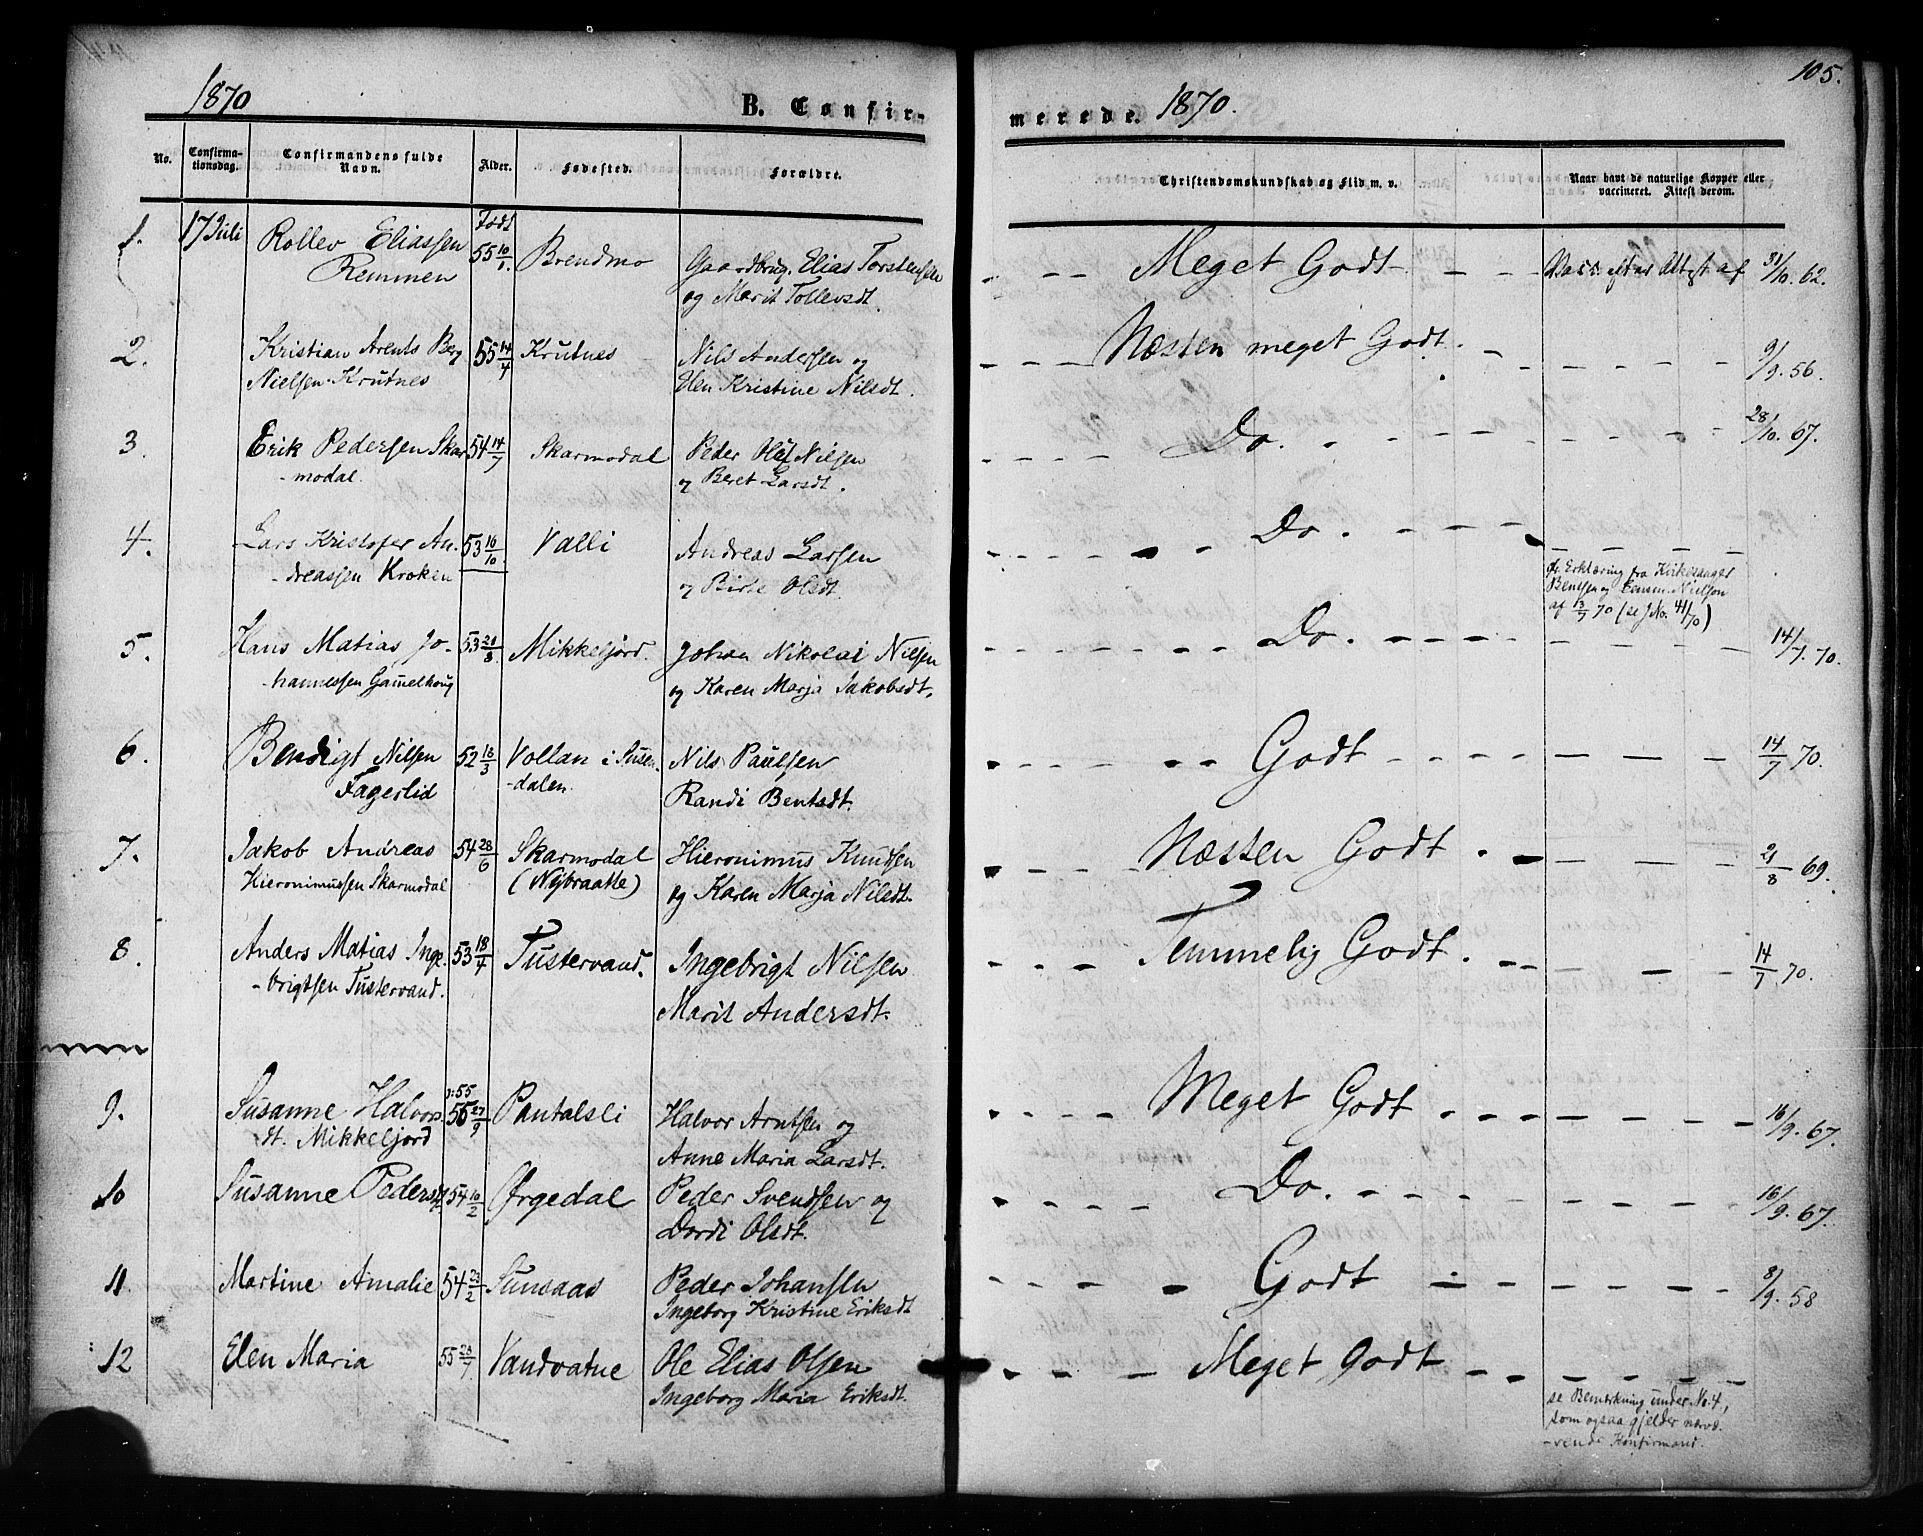 1870
B. Confir-
merede.
1870.
105.
No.
Confirma-
tionsdag.
Confirmandens fulde
Navn.
Alder.
Fødested.
Forældre.
Christendomskundskab og Flid m. v.
Naar havt de naturlige Kopper eller
vaccineret. Attest derom.
1. 17 Juli Rollev Eliassen Født 55 10/1. Brendmo Gaardbrug. Elias Torstensen - - - Meget Godt - - Vacc. efter Attest af 31/10. 62.
Remmen og Marit Tollevsdt.
2. Kristian Arents Berg 55 14/4 Krutnes Nils Andersen og - - - Næsten meget Godt. - - - - 9/9. 56.
Nielsen Krutnes Elen Kristine Nilsdt.
3. Erik Pedersen Skar 54 14/7 Skarmodal Peder Oluf Nilsen - - - Do. - - - - 28/10. 67.
-modal. og Beret Larsdt.
4. Lars Kristofer An- 53 16/10 Valli Andreas Larsen - - - Do. - - - -
-dreassen Kroken og Birte Olsdt.
fr. Erklæring fra Kirkesanger
Bentsen og Nielsen
af 13/7 70 (se J No. 41/70)
5. Hans Matias Jo- 53 21/8 Mikkeljord. Johan Nikolai Nilsen - - - Do. - - - - 14/7. 70.
-hannessen Gamelhoug og Karen Marja Jakobsdt.
6. Bendigt Nilsen 52 18/3 Vollan i Susen- Nils Paulsen - - - Godt - - - - 14/7 70.
Fagerlid -dalen. Randi Bentsdt.
7. Jakob Andreas 54 28/6 Skarmodal Hieronimus Knudsen - - - Næsten Godt. - - - - 21/8 69.
Hieronimussen Skarmodal (Nybraatte) og Karen Marja Nilsdt.
8. Anders Matias Inge- 53 18/4 Tustervand. Ingebrigt Nilsen - - - Temmelig Godt. - - - - 14/7. 70.
-brigtsen Tustervand. Marit Andersdt.
9. Susanne Halvors ɔ: 55 56 27/9 Pantalsli Halvor Arntsen og - - - Meget Godt. - - - - 16/9. 67.
dt. Mikkeljord Anne Maria Larsdt.
10 Susanne Pedersdt 54 10/2 Ørgedal Peder Svendsen og - - - Do. - - - - 16/9. 67.
Dordi Olsdt.
11. Martine Amalie 54 23/2 Sunsaas Peder Johansen - - - Godt - - - - 8/9. 58
Ingeborg Kristine Eriksdt
12 Elen Maria 55 28/7 Vandvatne Ole Elias Olsen - - - Meget Godt - - - -
Ingeborg Maria Eriksdt.
se Bemærkning under No. 4,
som ogsaa gjelder nærvæ
-rende Konfirmand.